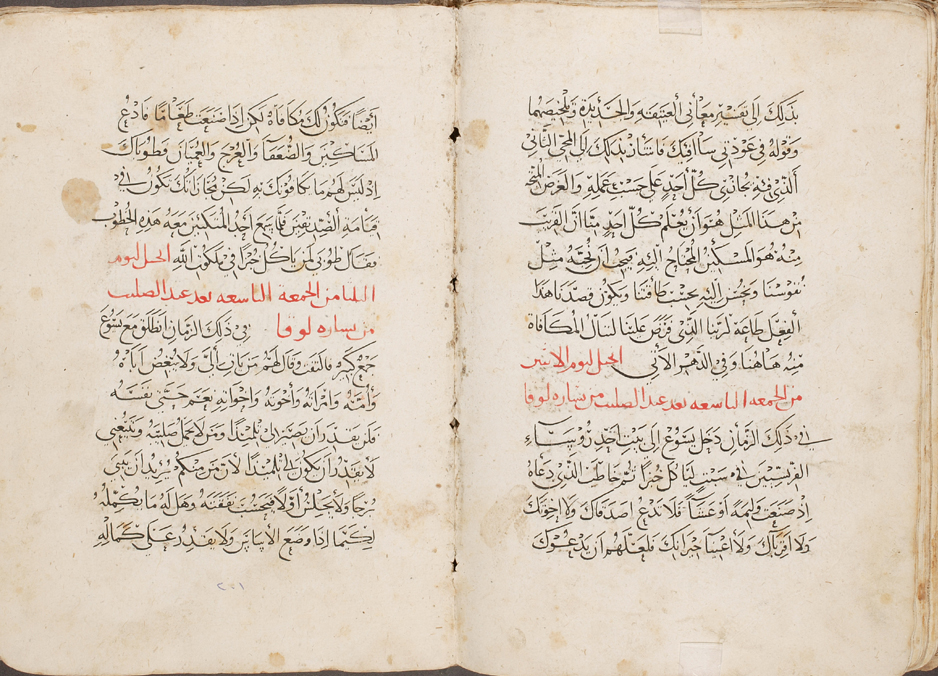 بذلك الى تفسير معاني العتيقه والحديثة وتلخيصهما
وقوله في عودتي سأافيك فاشار بذلك الى المجي الثاني
الذي فيه يجازي كل احد على حسب عمله والغرض المتجه
من هذا المثل هو ان يعلم كل احد منا ان القريب
منه هو المسكين المحتاج اليه فيجب ان نحبه مثل
نفوسنا ونحسن اليه بحسب طاقتنا ويكون قصدنا هذا
الفعل طاعة لربنا الذي فرض علينا لننال المكافاة
منه هاهنا وفي الدهر الآتي انجيل ليوم الاثنين
من الجمعه التاسعه بعد عيد الصليب من بشاره لوقا
في ذلك الزمان دخل يسوع الى بيت احد رؤساء
الفريسيين في سبت لياكل خبزا ثم خاطب الذي دعاه
اذ صنعت وليمة او عشآ فلا تدع اصدقاك ولا اخوتك
ولا اقرباك ولا اغنيآ جيرانك فلعلهم ان يدعوك
ايضا فتكون لك مكافاة لكن اذا صنعت طعاما فادع
المساكين والضعفا والعرج والعميان فطوباك
اذ ليس لهم ما يكافونك به لكن مجازاتك تكون في
قيامة الصديقين فلما سمع احد المتكئين معه هذه الخطوب
فقال طوبى لمن ياكل خبزا في ملكوت الله انجيل ليوم
الثلثا من الجمعة التاسعه بعد عيد الصليب
من بشاره لوقا في ذلك الزمان انطلق مع يسوع
جمع كبير فالتفت وقال لهم من يات الى ولا يبغض اباه
وامه وامراته واخوته واخواته نعم حتى نفسه
فلن يقدر ان يصير لي تلميذا ومن لا يحمل صليبه ويتبعني
لا يقدر ان يكون لي تلميذا لان من منكم يريد ان يبني
برجا ولا يجلس أولا فيحسب نفقته وهل له ما يكمله
لكيما اذا وضع الاساس ولا يقدر على كماله
٢٠١